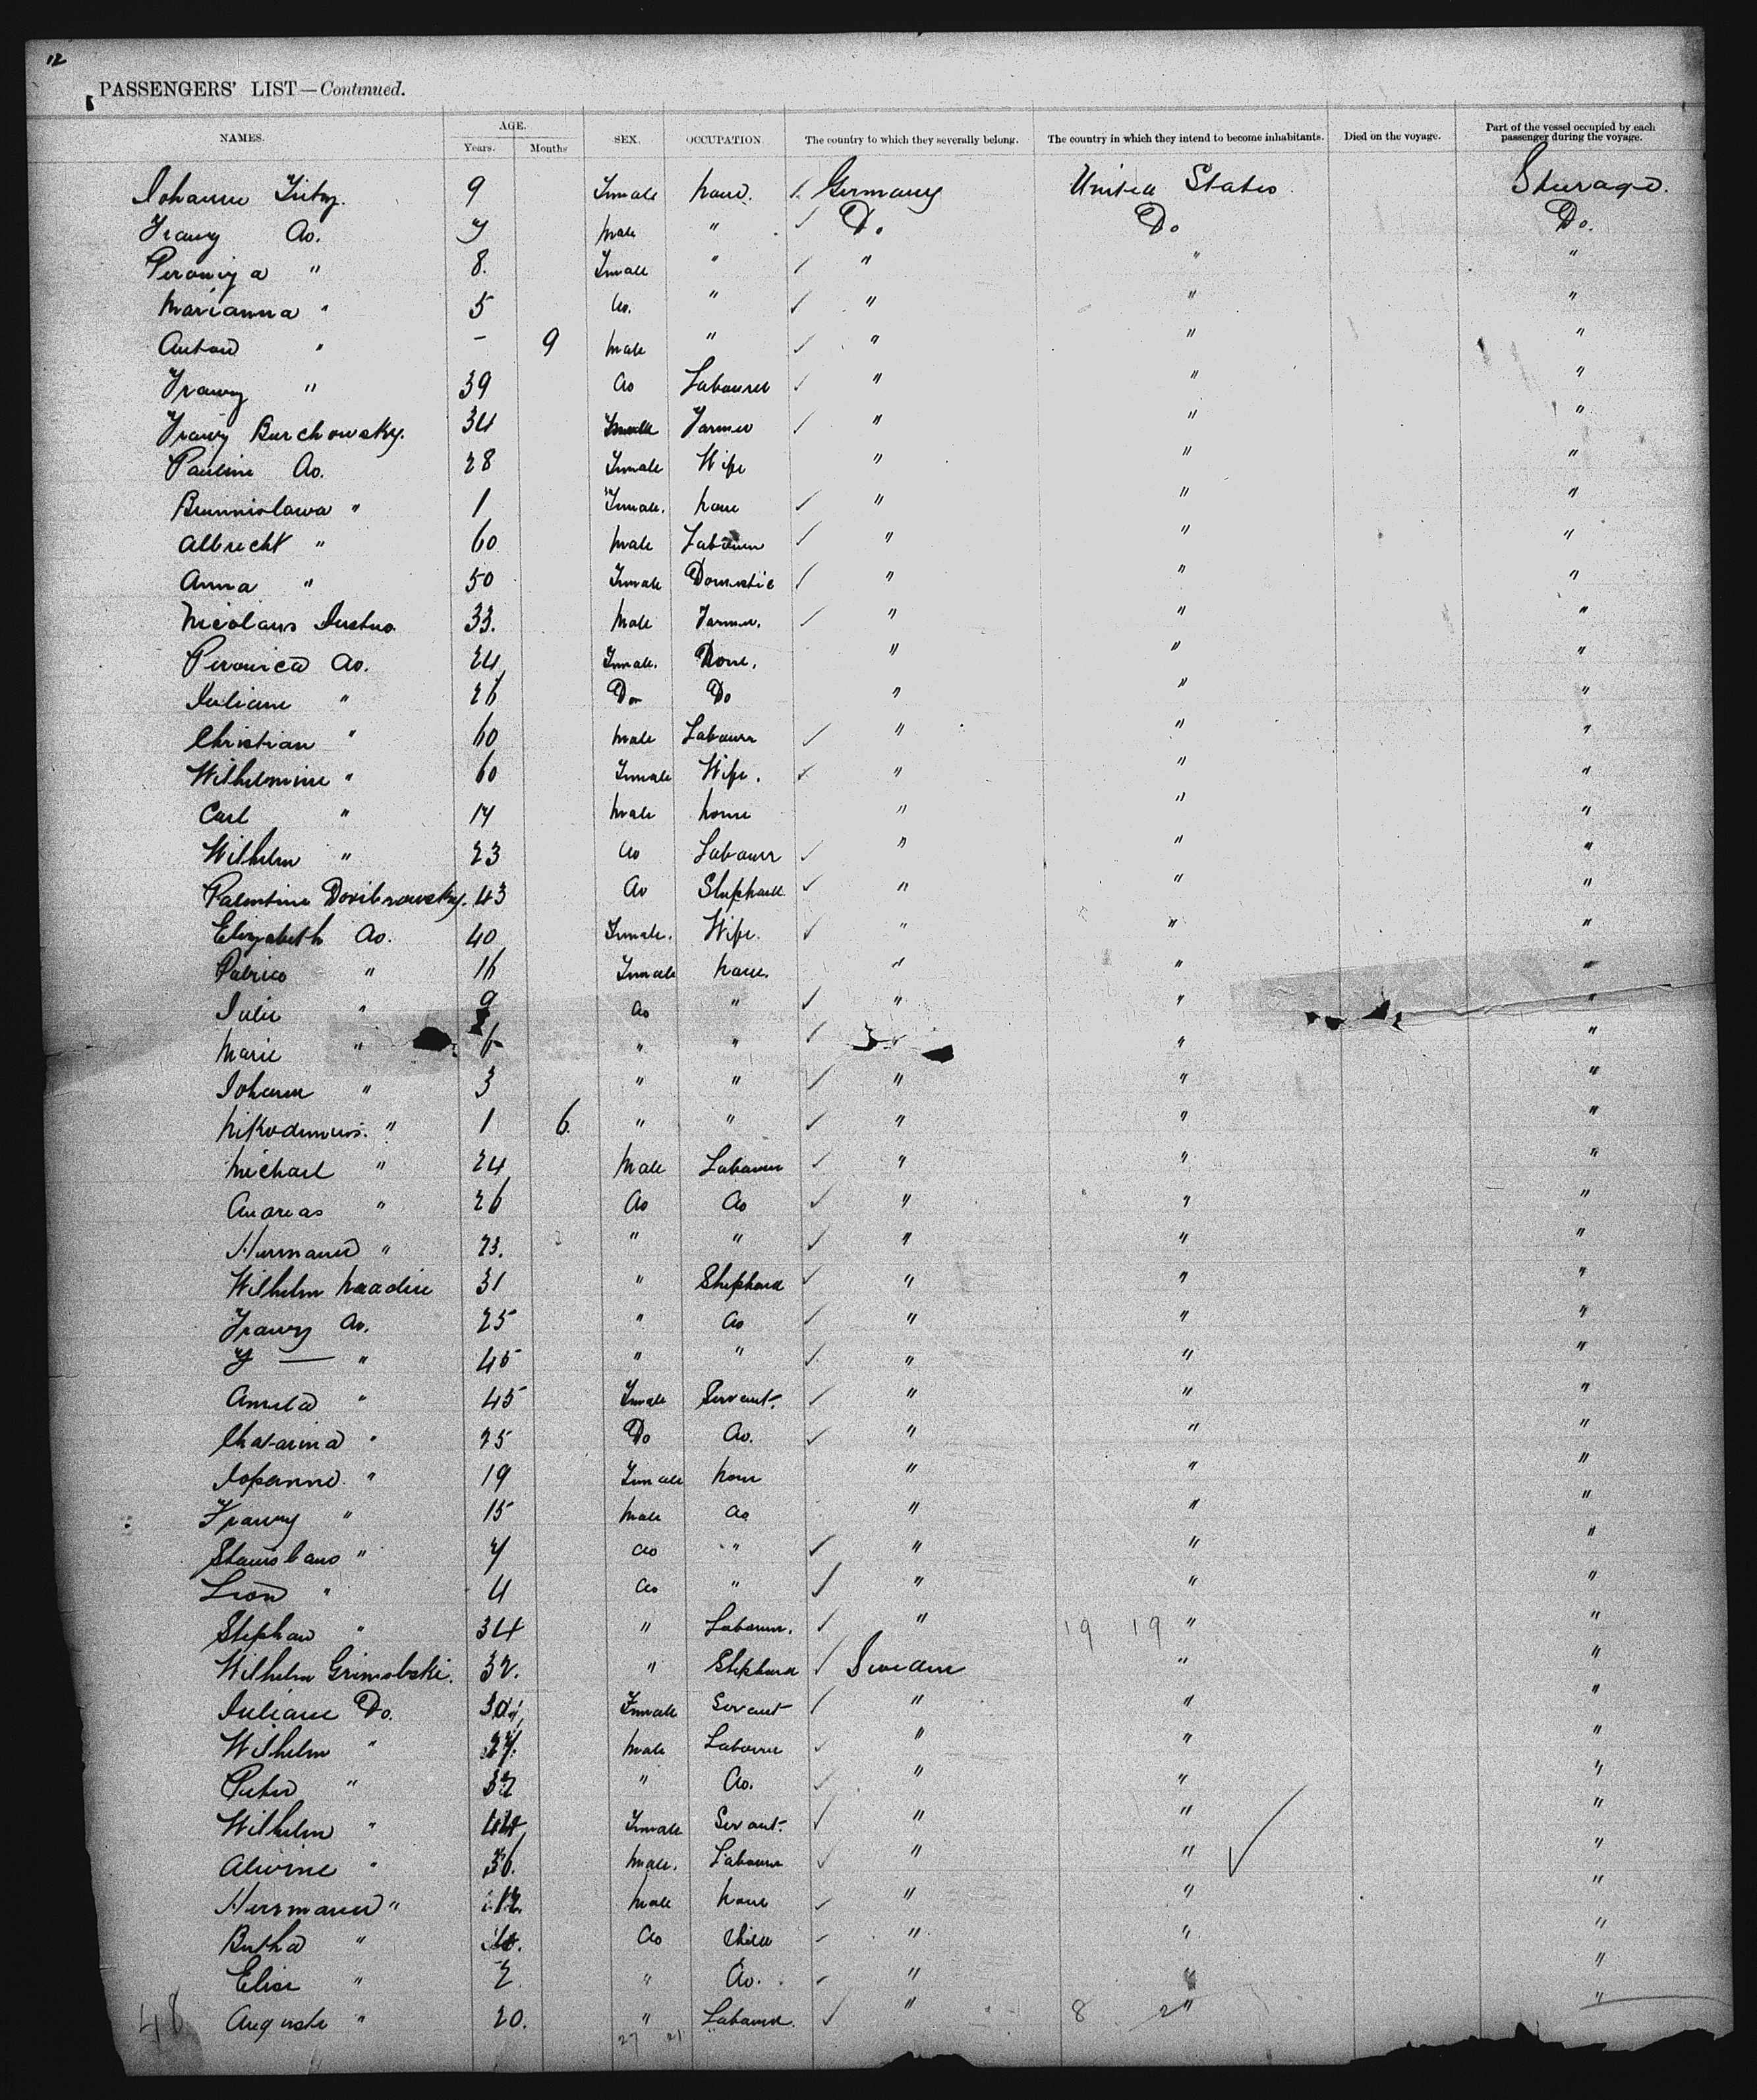 12
PASSENGERS' LIST—Continued.
NAMES. AGE. Years. Months SEX. OCCUPATION The country to which they severally belong. The country in which they intend to become inhabitants. Died on the voyage. Part of the vessel occupied by each passenger during the voyage.
Johanne 9 Female none. Germany United States Steerage.
Franz Do. 7 Male " Do. Do Do.
" 8. Female " " " "
Marianna " 5 Do. " " " "
Anton " - 9 Male " " " "
Franz " 39 Do Labourer " " "
Franz Burchowsky. 34 Farmer " " "
Pauline Do. 28 Female Wife " " "
Brunnislawa " 1 Female. none " " "
Albrecht " 60 Male Labourer " " "
Anna " 50 Female Domestic " " "
Nicolaus 33. Male Farmer. " " "
Veronica Do. 24 Female. None. " " "
Juliane " 26 Do Do " " "
Christian " 60 Male Labourer " " "
Wilhelmine " 60 Female Wife. " " "
Carl " 14 Male none " " "
Wilhelm " 23 Do Labourer " " "
Valentine 43 Do Shephard " " "
Elizabeth Do. 40 Female. Wife. " " "
" 16 Female none. " " "
Julie " 9 Do " " " "
Marie " 6 " " " "
Johann " 3 " " " " "
Nikodemus. " 1 6. " " " " "
Michael " 24 Male Labourer " " "
Andreas " 26 Do Do " " "
Hermann " 23. " " " " "
Wilhelm Naadire 31 " Shephard " " "
Franz Do. 25 " Do " " "
F — " 45 " " " " "
Amelia " 45 Female Servant. " " "
Chatarina " 25 Do Do. " " "
Johanne " 19 Female none " " "
Franz " 15 Male Do " " "
Stanislaus " 7 Do " " " "
Leon " 4 Do " " " "
Stephan " 34 " Labourer. " 19 19 " "
Wilhelm Grimobski. 32. " Shephard Sweden " "
Juliane Do. 30. Female Servant " " "
Wilhelm " 27. Male Labourer " " "
Peter " 32 " Do. " " "
Wilhelm " 44 Female Servant. " " "
Alwine " 36. Male. Labourer " " "
Herrmann " Male none " " "
Bertha " Do Child " " "
Elise " 2 " Do. " " "
48 Auguste " 20. " Labourer. " 8 2 " "
27 21